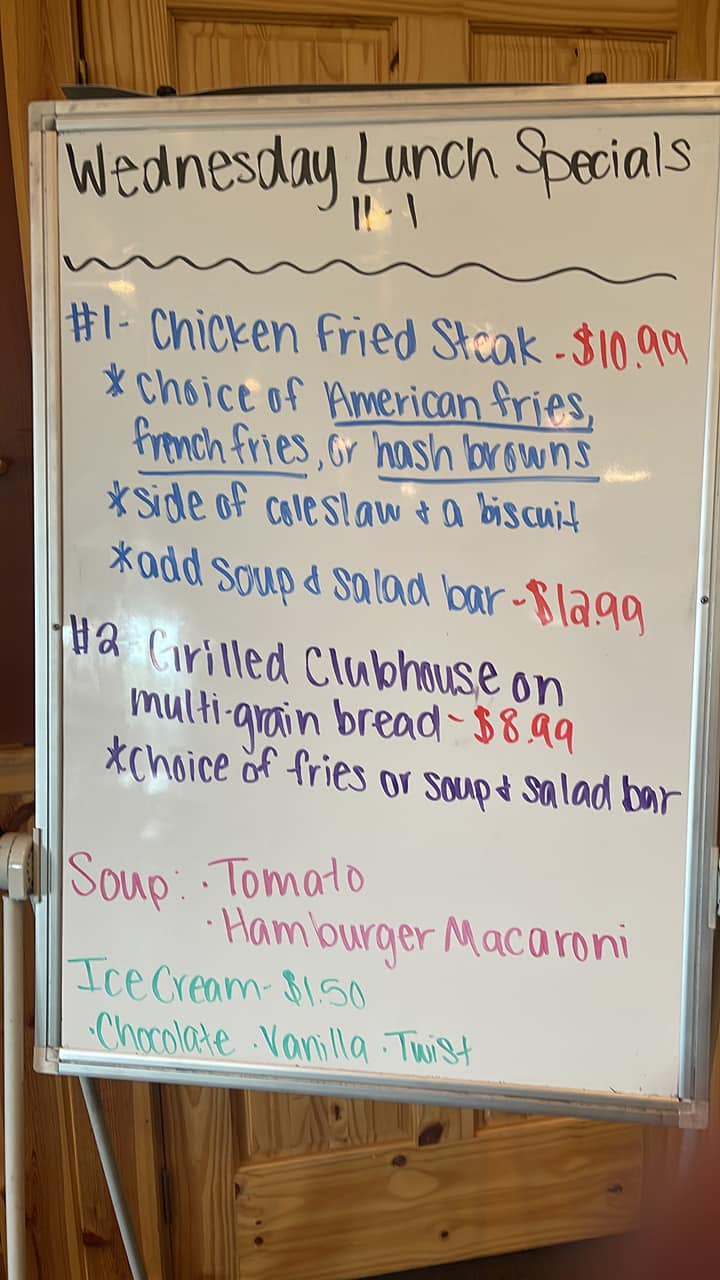 Wednesday Lunch Specials
11-1
#1- Chicken Fried Steak - $10.99
* choice of American fries,
french fries, or hash browns
* side of coleslaw & a biscuit
* add soup & salad bar - $12.99
#2 Grilled Clubhouse on
multi-grain bread - $8.99
* choice of fries or soup & salad bar
Soup: · Tomato
· Hamburger Macaroni
Ice Cream - $1.50
· Chocolate · Vanilla · Twist